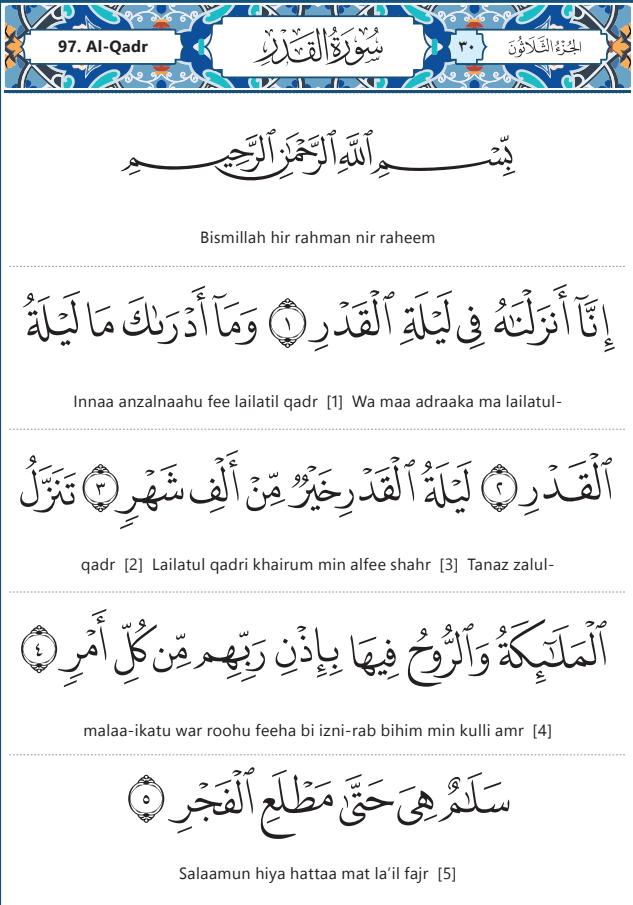 97. Al-Qadr
سُورَةُ القَدْرِ
٣٠
الجُزْءُ الثَّلَاثُونَ
بِّسْمِ ٱللَّهِ ٱلرَّحْمَٰنِ ٱلرَّحِيمِ
Bismillah hir rahman nir raheem
إِنَّآ أَنزَلْنَٰهُ فِى لَيْلَةِ ٱلْقَدْرِ ١ وَمَآ أَدْرَىٰكَ مَا لَيْلَةُ
Innaa anzalnaahu fee lailatil qadr [1] Wa maa adraaka ma lailatul-
ٱلْقَدْرِ ٢ لَيْلَةُ ٱلْقَدْرِ خَيْرٌ مِّنْ أَلْفِ شَهْرٍ ٣ تَنَزَّلُ
qadr [2] Lailatul qadri khairum min alfee shahr [3] Tanaz zalul-
ٱلْمَلَٰٓئِكَةُ وَٱلرُّوحُ فِيهَا بِإِذْنِ رَبِّهِم مِّن كُلِّ أَمْرٍ ٤
malaa-ikatu war roohu feeha bi izni-rab bihim min kulli amr [4]
سَلَٰمٌ هِىَ حَتَّىٰ مَطْلَعِ ٱلْفَجْرِ ٥
Salaamun hiya hattaa mat la’il fajr [5]